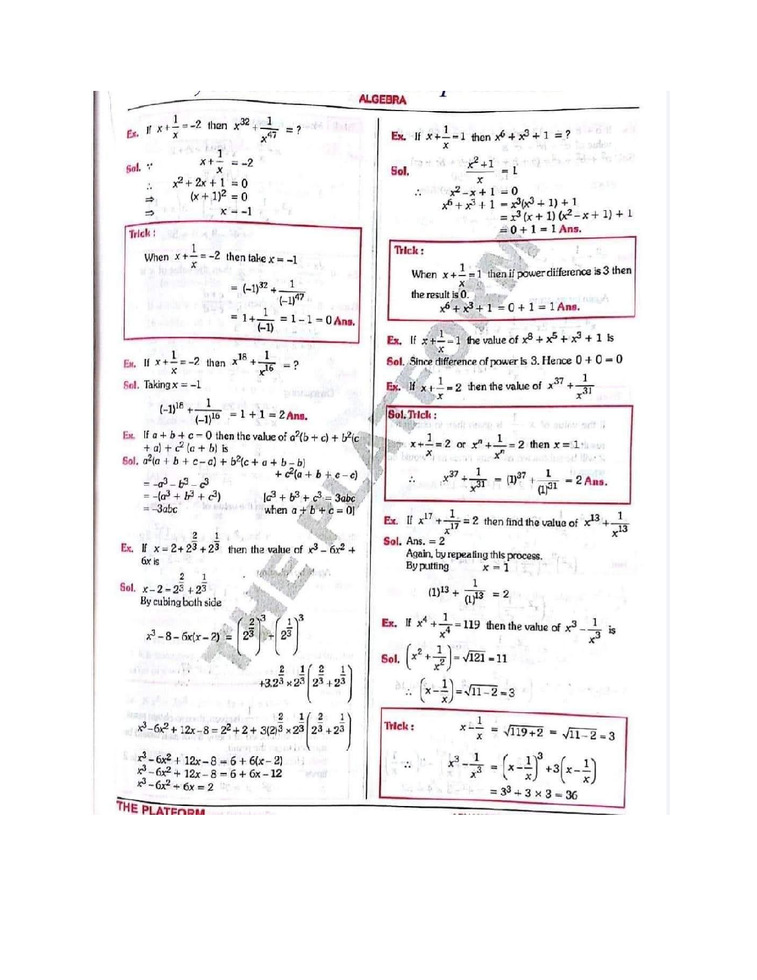 ALGEBRA
Ex. If x + 1/x = -2 then x^32 + 1/x^47 = ?
Sol. ∵ x + 1/x = -2
∴ x^2 + 2x + 1 = 0
⇒ (x + 1)^2 = 0
⇒ x = -1
Trick :
When x + 1/x = -2 then take x = -1
= (-1)^32 + 1/(-1)^47
= 1 + 1/(-1) = 1 - 1 = 0 Ans.
Ex. If x + 1/x = -2 then x^18 + 1/x^16 = ?
Sol. Taking x = -1
(-1)^18 + 1/(-1)^16 = 1 + 1 = 2 Ans.
Ex. If a + b + c = 0 then the value of a^2(b + c) + b^2(c
+ a) + c^2 (a + b) is
Sol. a^2(a + b + c - a) + b^2(c + a + b - b)
+ c^2(a + b + c - c)
= -a^3 - b^3 - c^3
= -(a^3 + b^3 + c^3) [c^3 + b^3 + c^3 = 3abc
= -3abc when a + b + c = 0]
Ex. If x = 2 + 2^(2/3) + 2^(1/3) then the value of x^3 - 6x^2 +
6x is
Sol. x - 2 = 2^(2/3) + 2^(1/3)
By cubing both side
x^3 - 8 - 6x(x - 2) = (2^(2/3))^3 + (2^(1/3))^3
+3.2^(2/3) × 2^(1/3) (2^(2/3) + 2^(1/3))
x^3 - 6x^2 + 12x - 8 = 2^2 + 2 + 3(2)^(2/3) × 2^(1/3) (2^(2/3) + 2^(1/3))
x^3 - 6x^2 + 12x - 8 = 6 + 6(x - 2)
x^3 - 6x^2 + 12x - 8 = 6 + 6x - 12
x^3 - 6x^2 + 6x = 2
THE PLATFORM
Ex. If x + 1/x = 1 then x^6 + x^3 + 1 = ?
Sol. (x^2 + 1)/x = 1
∴ x^2 - x + 1 = 0
x^6 + x^3 + 1 = x^3(x^3 + 1) + 1
= x^3 (x + 1) (x^2 - x + 1) + 1
= 0 + 1 = 1 Ans.
Trick :
When x + 1/x = 1 then if power difference is 3 then
the result is 0.
x^6 + x^3 + 1 = 0 + 1 = 1 Ans.
Ex. If x + 1/x = 1 the value of x^8 + x^5 + x^3 + 1 is
Sol. Since difference of power is 3. Hence 0 + 0 = 0
Ex. If x + 1/x = 2 then the value of x^37 + 1/x^31
Sol. Trick :
x + 1/x = 2 or x^n + 1/x^n = 2 then x = 1
∴ x^37 + 1/x^31 = (1)^37 + 1/(1)^31 = 2 Ans.
Ex. If x^17 + 1/x^17 = 2 then find the value of x^13 + 1/x^13
Sol. Ans. = 2
Again, by repeating this process.
By putting x = 1
(1)^13 + 1/(1)^13 = 2
Ex. If x^4 + 1/x^4 = 119 then the value of x^3 - 1/x^3 is
Sol. (x^2 + 1/x^2) = √121 = 11
∴ (x - 1/x) = √11 - 2 = 3
Trick : x - 1/x = √119+2 = √11 - 2 = 3
∴ x^3 - 1/x^3 = (x - 1/x)^3 + 3(x - 1/x)
= 3^3 + 3 × 3 = 36
THE PLATEFORM